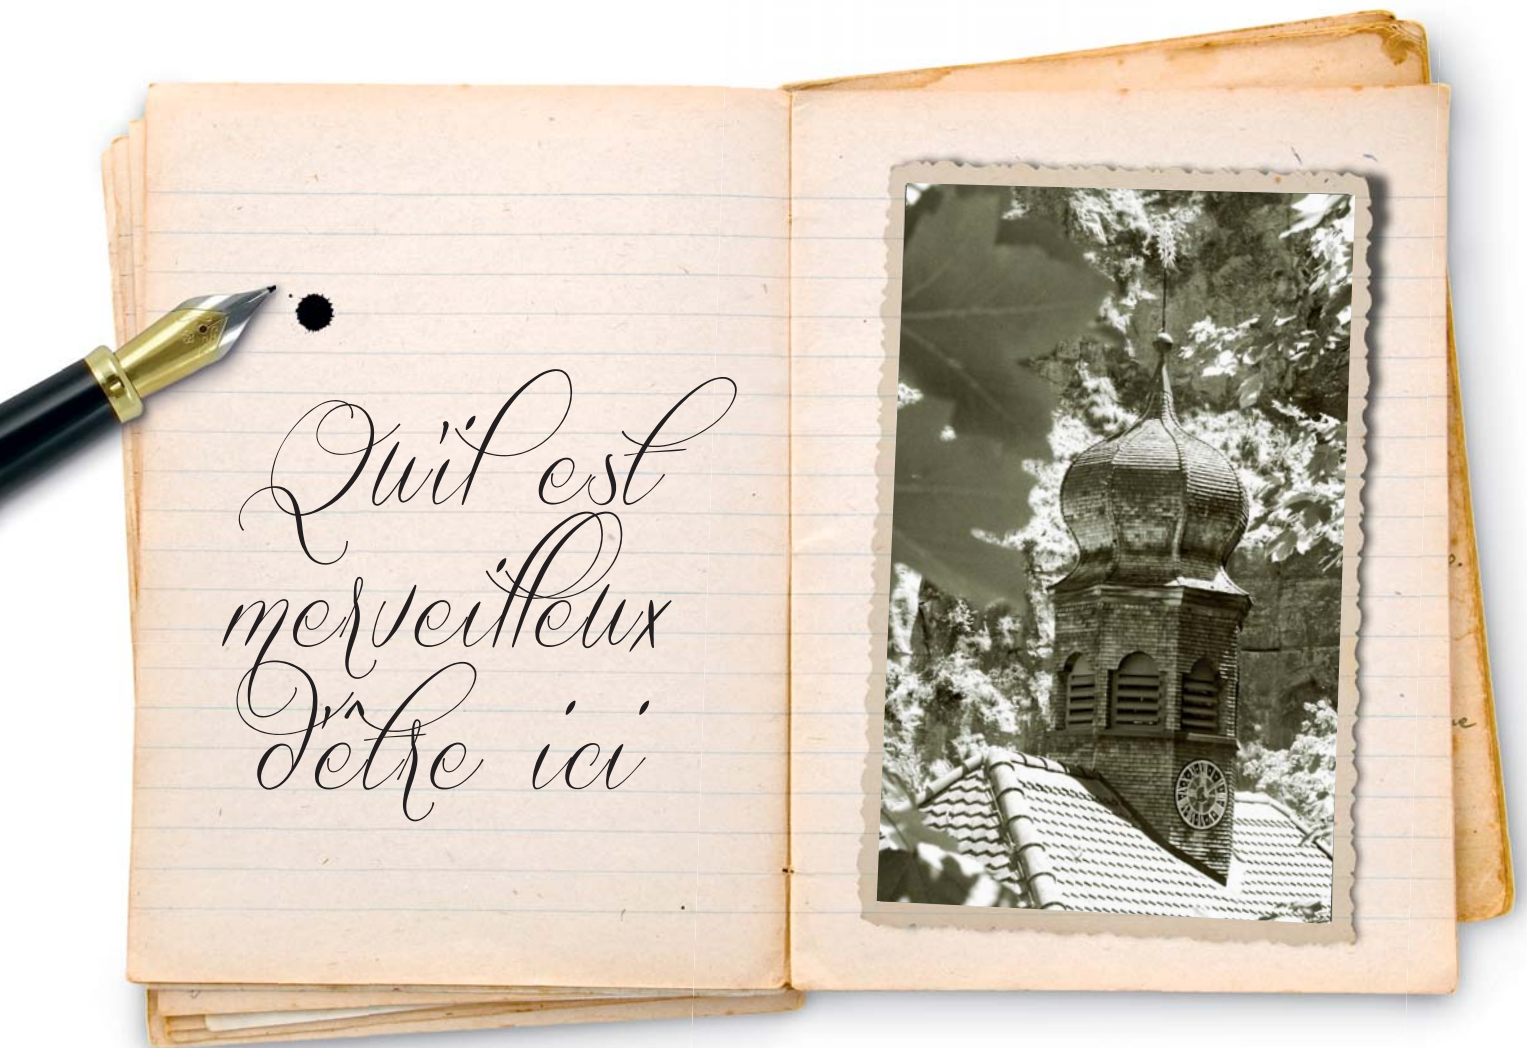 Qu'il est
merveilleux
d'être ici